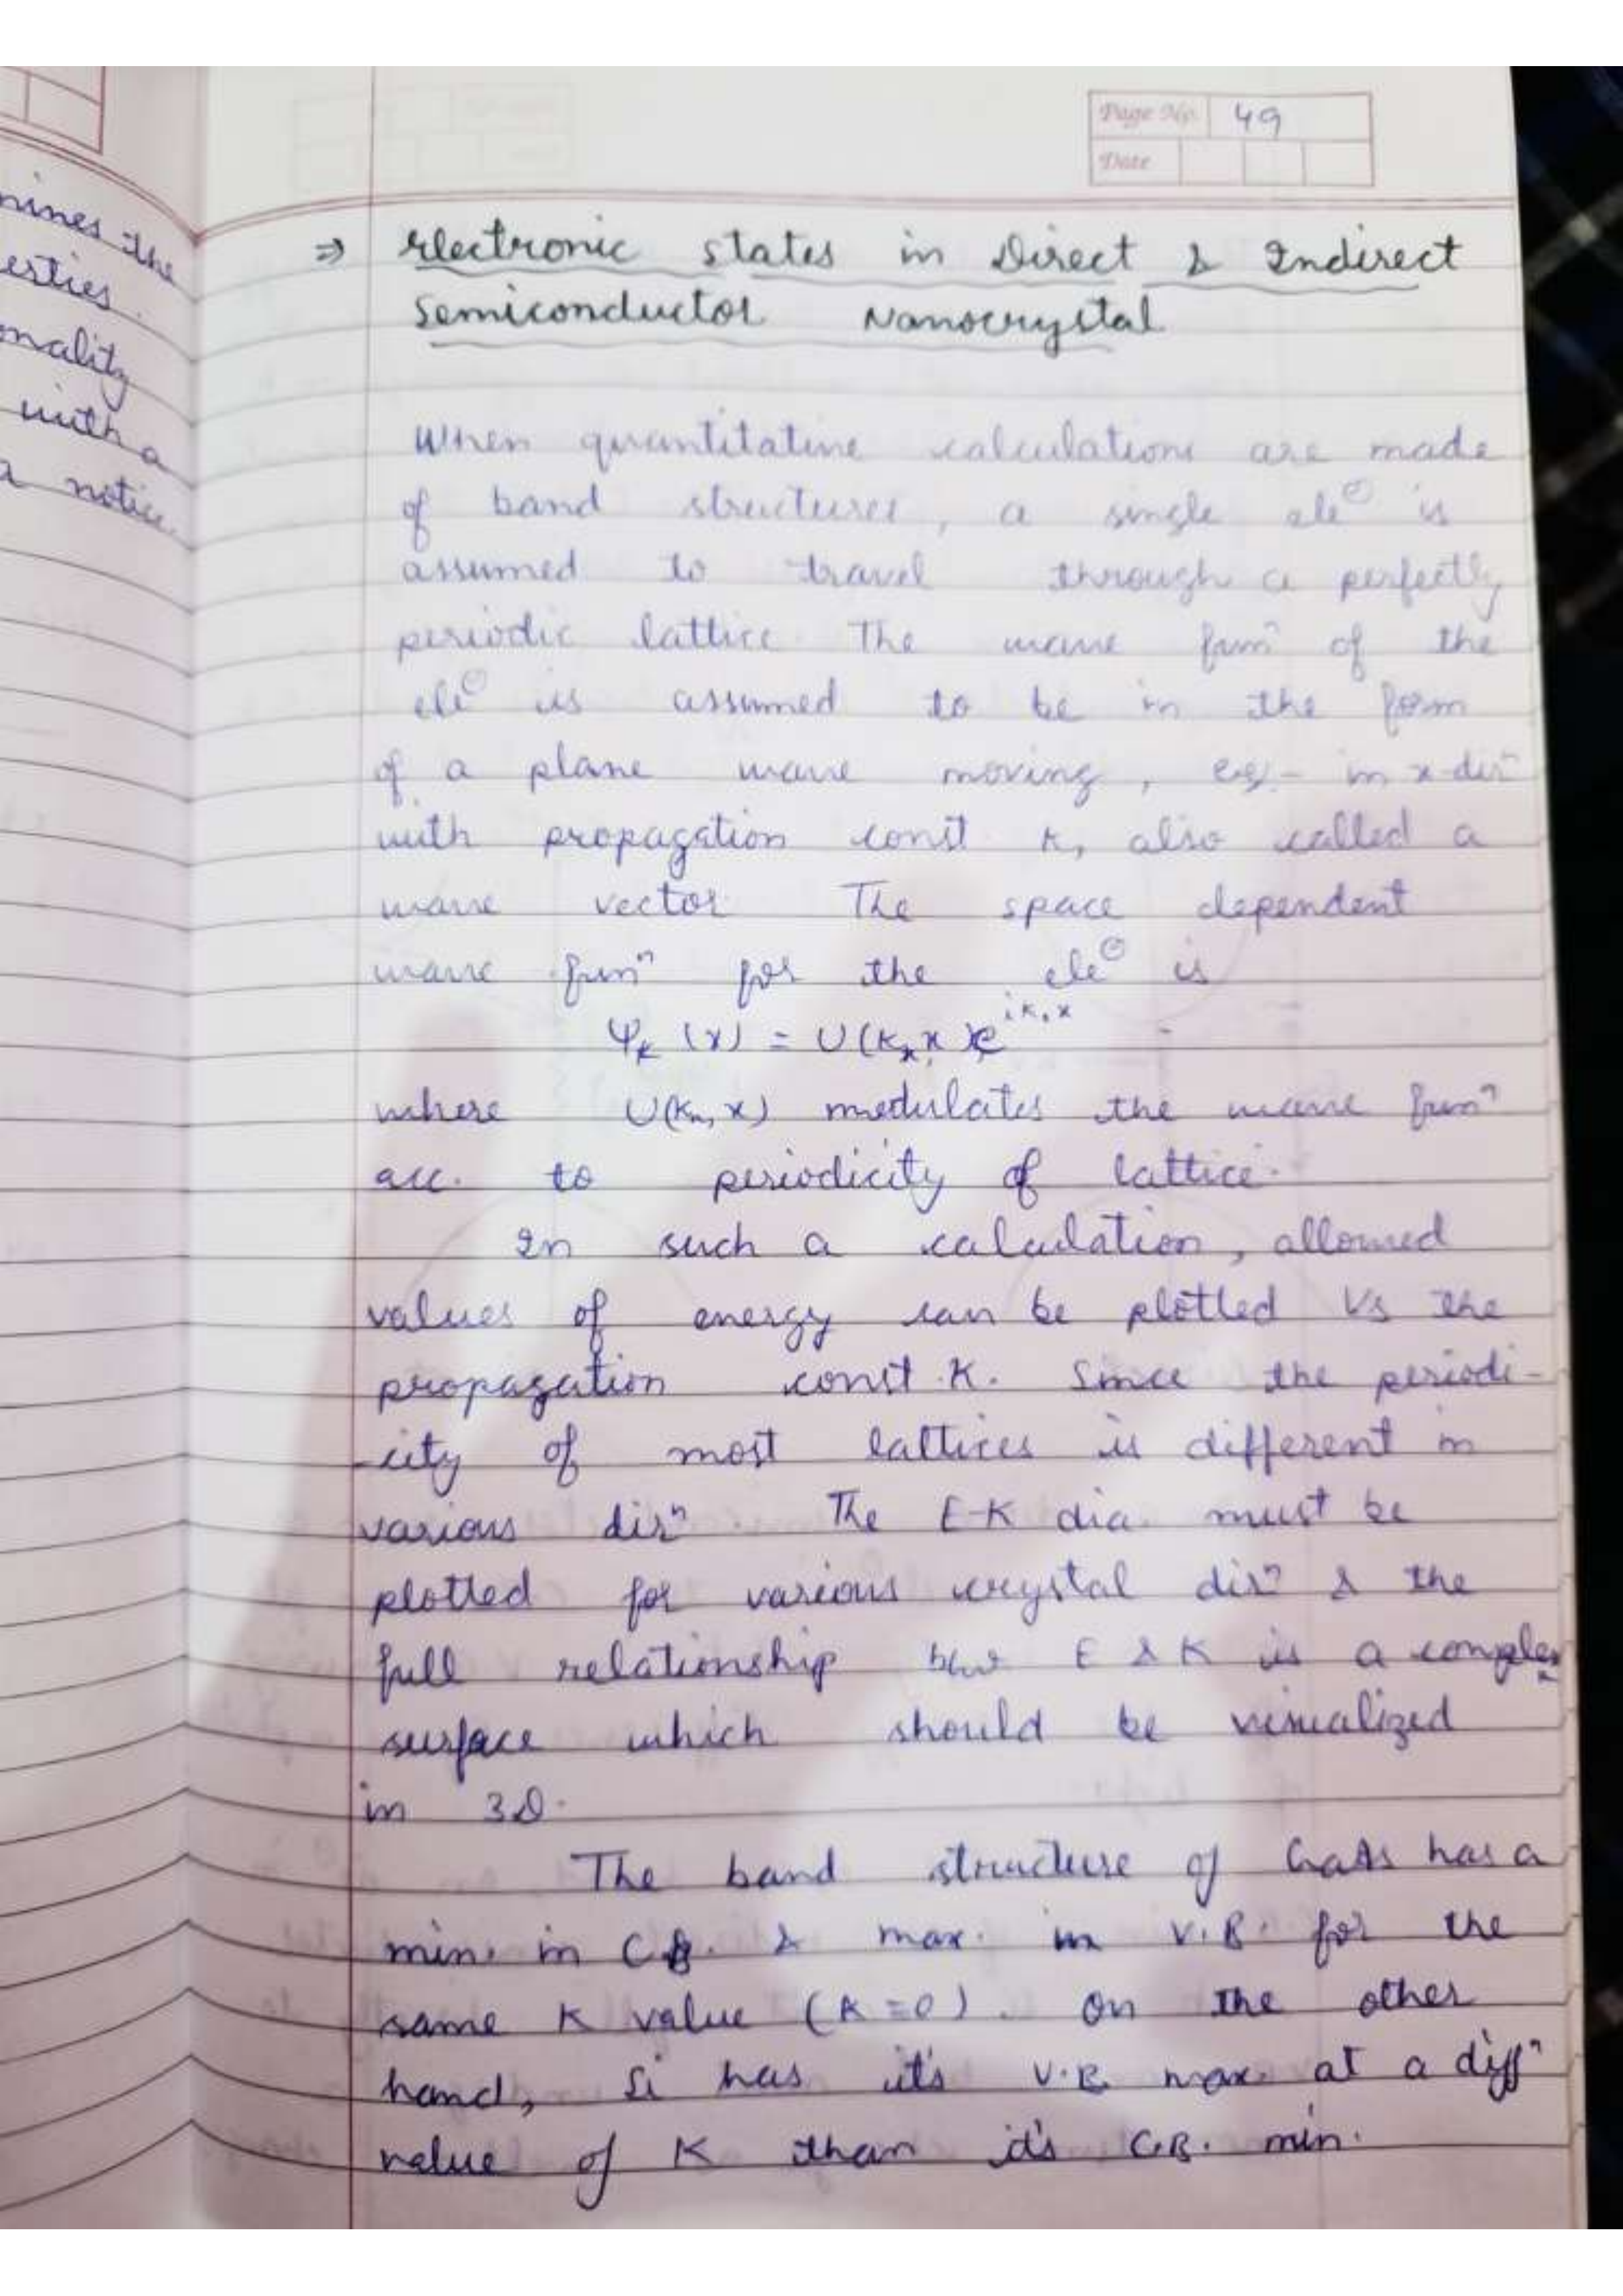 mines the
erties.
onality
with a
a notice.
Page No. 49
Date
⇒ Electronic states in Direct & Indirect
Semiconductor Nanocrystal
When quantitative calculations are made
of band structures, a single ele⊖ is
assumed to travel through a perfectly
periodic lattice. The wave funⁿ of the
ele⊖ is assumed to be in the form
of a plane wave moving, eg- in x-dirⁿ
with propagation const K, also called a
wave vector. The space dependent
wave funⁿ for the ele⊖ is
Ψₖ (x) = U(Kₓ, x) e^{iKₓx}
where U(Kₓ, x) modulates the wave funⁿ
acc. to periodicity of lattice.
In such a calculation, allowed
values of energy can be plotted Vs the
propagation const. K. Since the periodi-
-city of most lattices is different in
various dirⁿ. The E-K dia. must be
plotted for various crystal dirⁿ & the
full relationship b/w E & K is a complex
surface which should be visualized
in 3D.
The band structure of GaAs has a
min. in C.B. & max. in V.B. for the
same K value (K=0). On the other
hand, Si has it's V.B. max. at a diffⁿ
value of K than it's C.B. min.